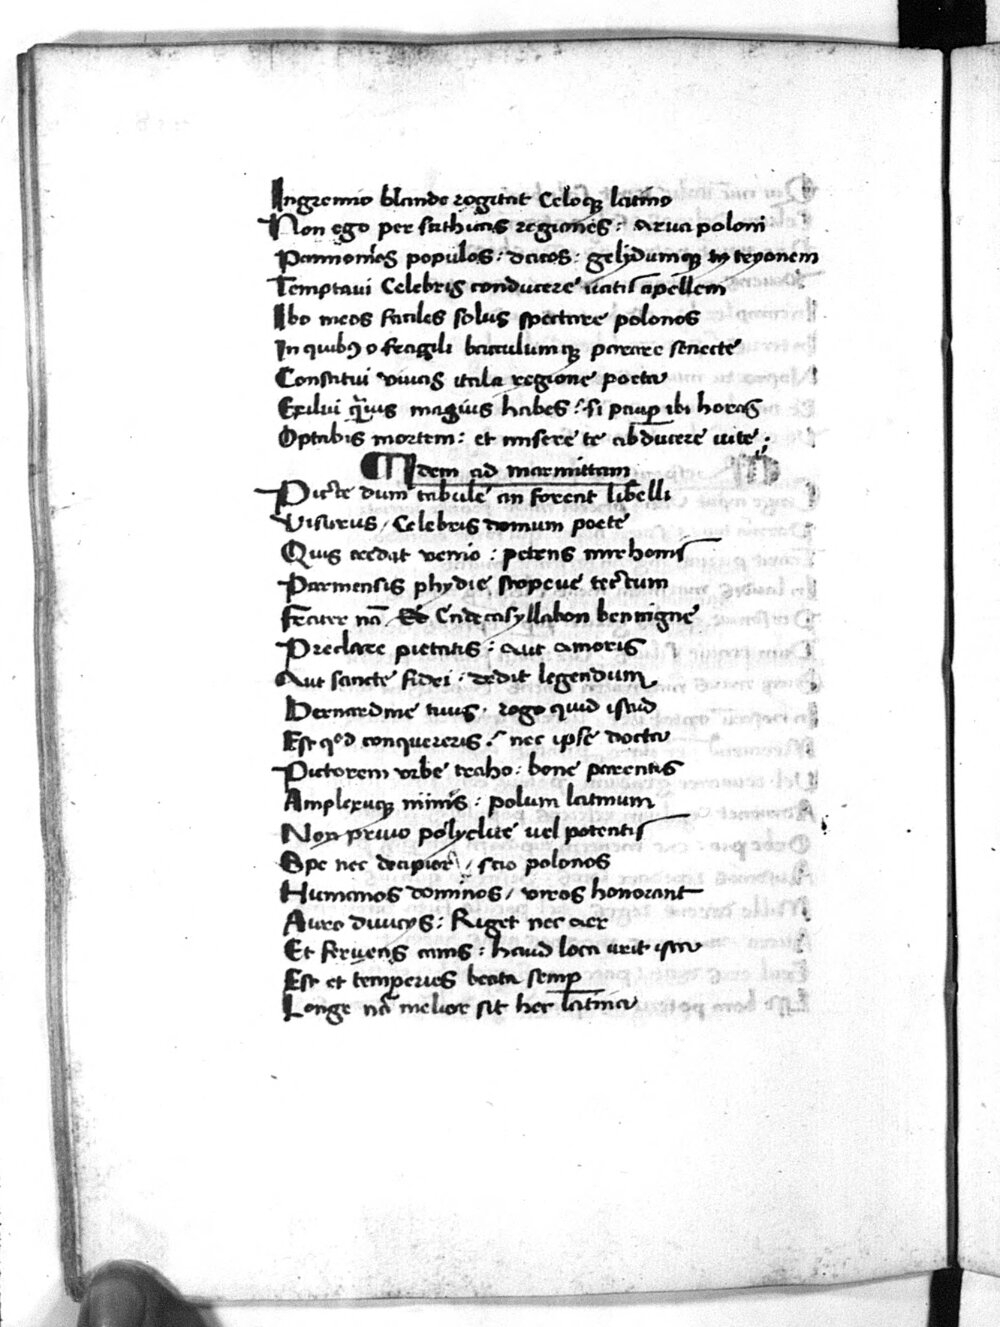 Ingremio blande rogitat Celoq; latino
Non ego per scithicas regiones: arua poloni
Pannonies populos: dacos: gelydumq; tryonem
Temptaui Celebris conducere uatis apellem
Ibo meos faciles solus spectare polonos
In quib9 o fragili baculumq; parare senecte
Constitui viuas itala regione poeta
Exilui magius habes: si paup ibi horas
Optabis mortem: et misere te abducere uite;
Idem ad marmittam
Picte dum tabule an forent libelli
Visurus / Celebris domum poete
Quis credat venio: petens
Parmensis phydie scopeue tectum
Ecce Endecasyllabon benigne
Preclare pietatis: aut amoris
Aut sancte fidei: dedit legendum
Bernardine tuus. rogo quid istud
Est qd conquereris: nec ipse docta
Pictorem vrbe traho: bone parentis
Amplexuq; minis: polum latinum
Non priuo polyclite uel potentis
Spe nec decipior / scio polonos
Humanos dominos / viros honorant
Auro diuitys: Riget nec aer
Et feruens canis: haud loca urit ista
Est et temperies beata semp
Longe nā melior sit hec latina